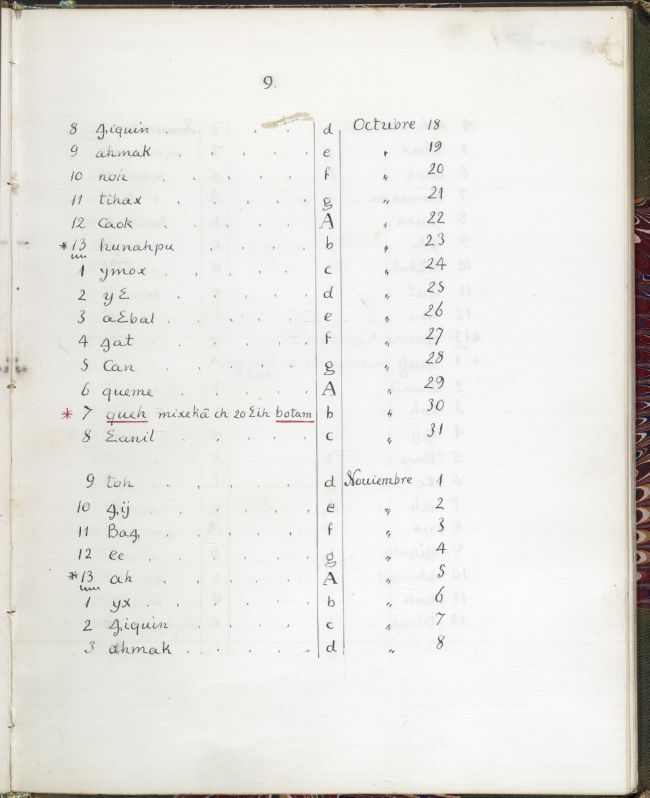 9.
8 ꜭiquin . . . d Octubre 18
9 ahmak . . . . . e " 19
10 noh . . . . . f " 20
11 tihax . . . . . g " 21
12 Caok . . . . . A " 22
*13 hunahpu . . . . b " 23
1 ymox . . . . . c " 24
2 yƐ . . . . . d " 25
3 aƐbal . . . . . e " 26
4 ꜭat . . . . . f " 27
5 Can . . . . . g " 28
6 queme . . . . . A " 29
* 7 queh mixekā ch 20 Ɛih botam b " 30
8 Ɛanil . . . . . c " 31
9 toh . . . . . d Nouiembre 1
10 ꜭij . . . . . e " 2
11 Baꜭ . . . . . f " 3
12 ee . . . . . g " 4
*13 ah . . . . . A " 5
1 yx . . . . . b " 6
2 ꜭiquin . . . . . c " 7
3 ahmak . . . . . d " 8